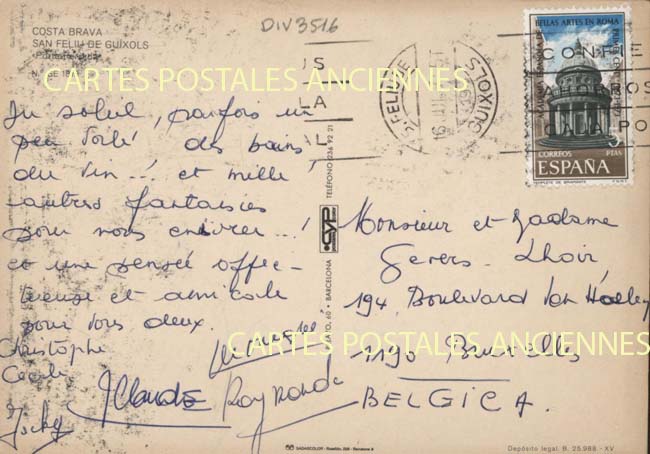 DIV3516
COSTA BRAVA
SAN FELIU DE GUÍXOLS
CARTES POSTALES ANCIENNES
Du soleil, parfois un
peu voilé des bains
du vin..! et mille
autres fantaisies
pour nous enivrer...!
et une pensée affec-
tueuse et amicale
pour vous deux.
Christophe
Cécile
Jacky
Claude
Raymonde
TELÉFONO 236 92 21
BARCELONA
S. FELIU DE GUIXOLS
CONFIE
AHORROS
CAJA PO
BELLAS ARTES EN ROMA
CORREOS
3 PTAS
ESPAÑA
TEMPLETE DE BRAMANTE
F.N.M.T.
Monsieur et Madame
Gevers - Lhoir
194, Boulevard Van Haelen
1190 Bruxelles
BELGICA.
CARTES POSTALES ANCIENNES
Depósito legal B. 25.988 - XV